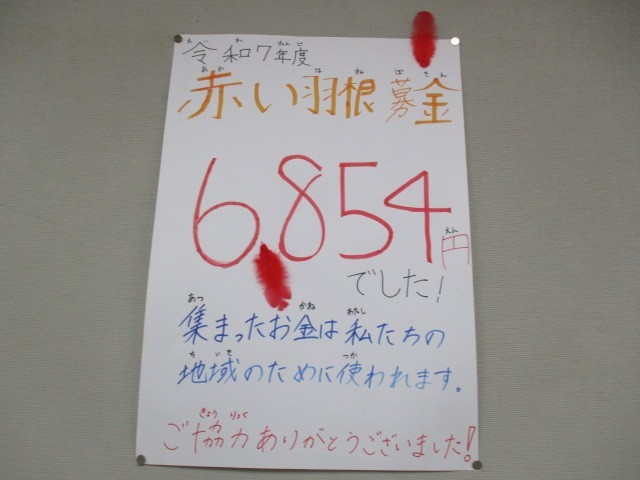 令和7年度
赤い羽根募金
6,854円
でした!
集まったお金は私たちの
地域のために使われます。
ご協力ありがとうございました!